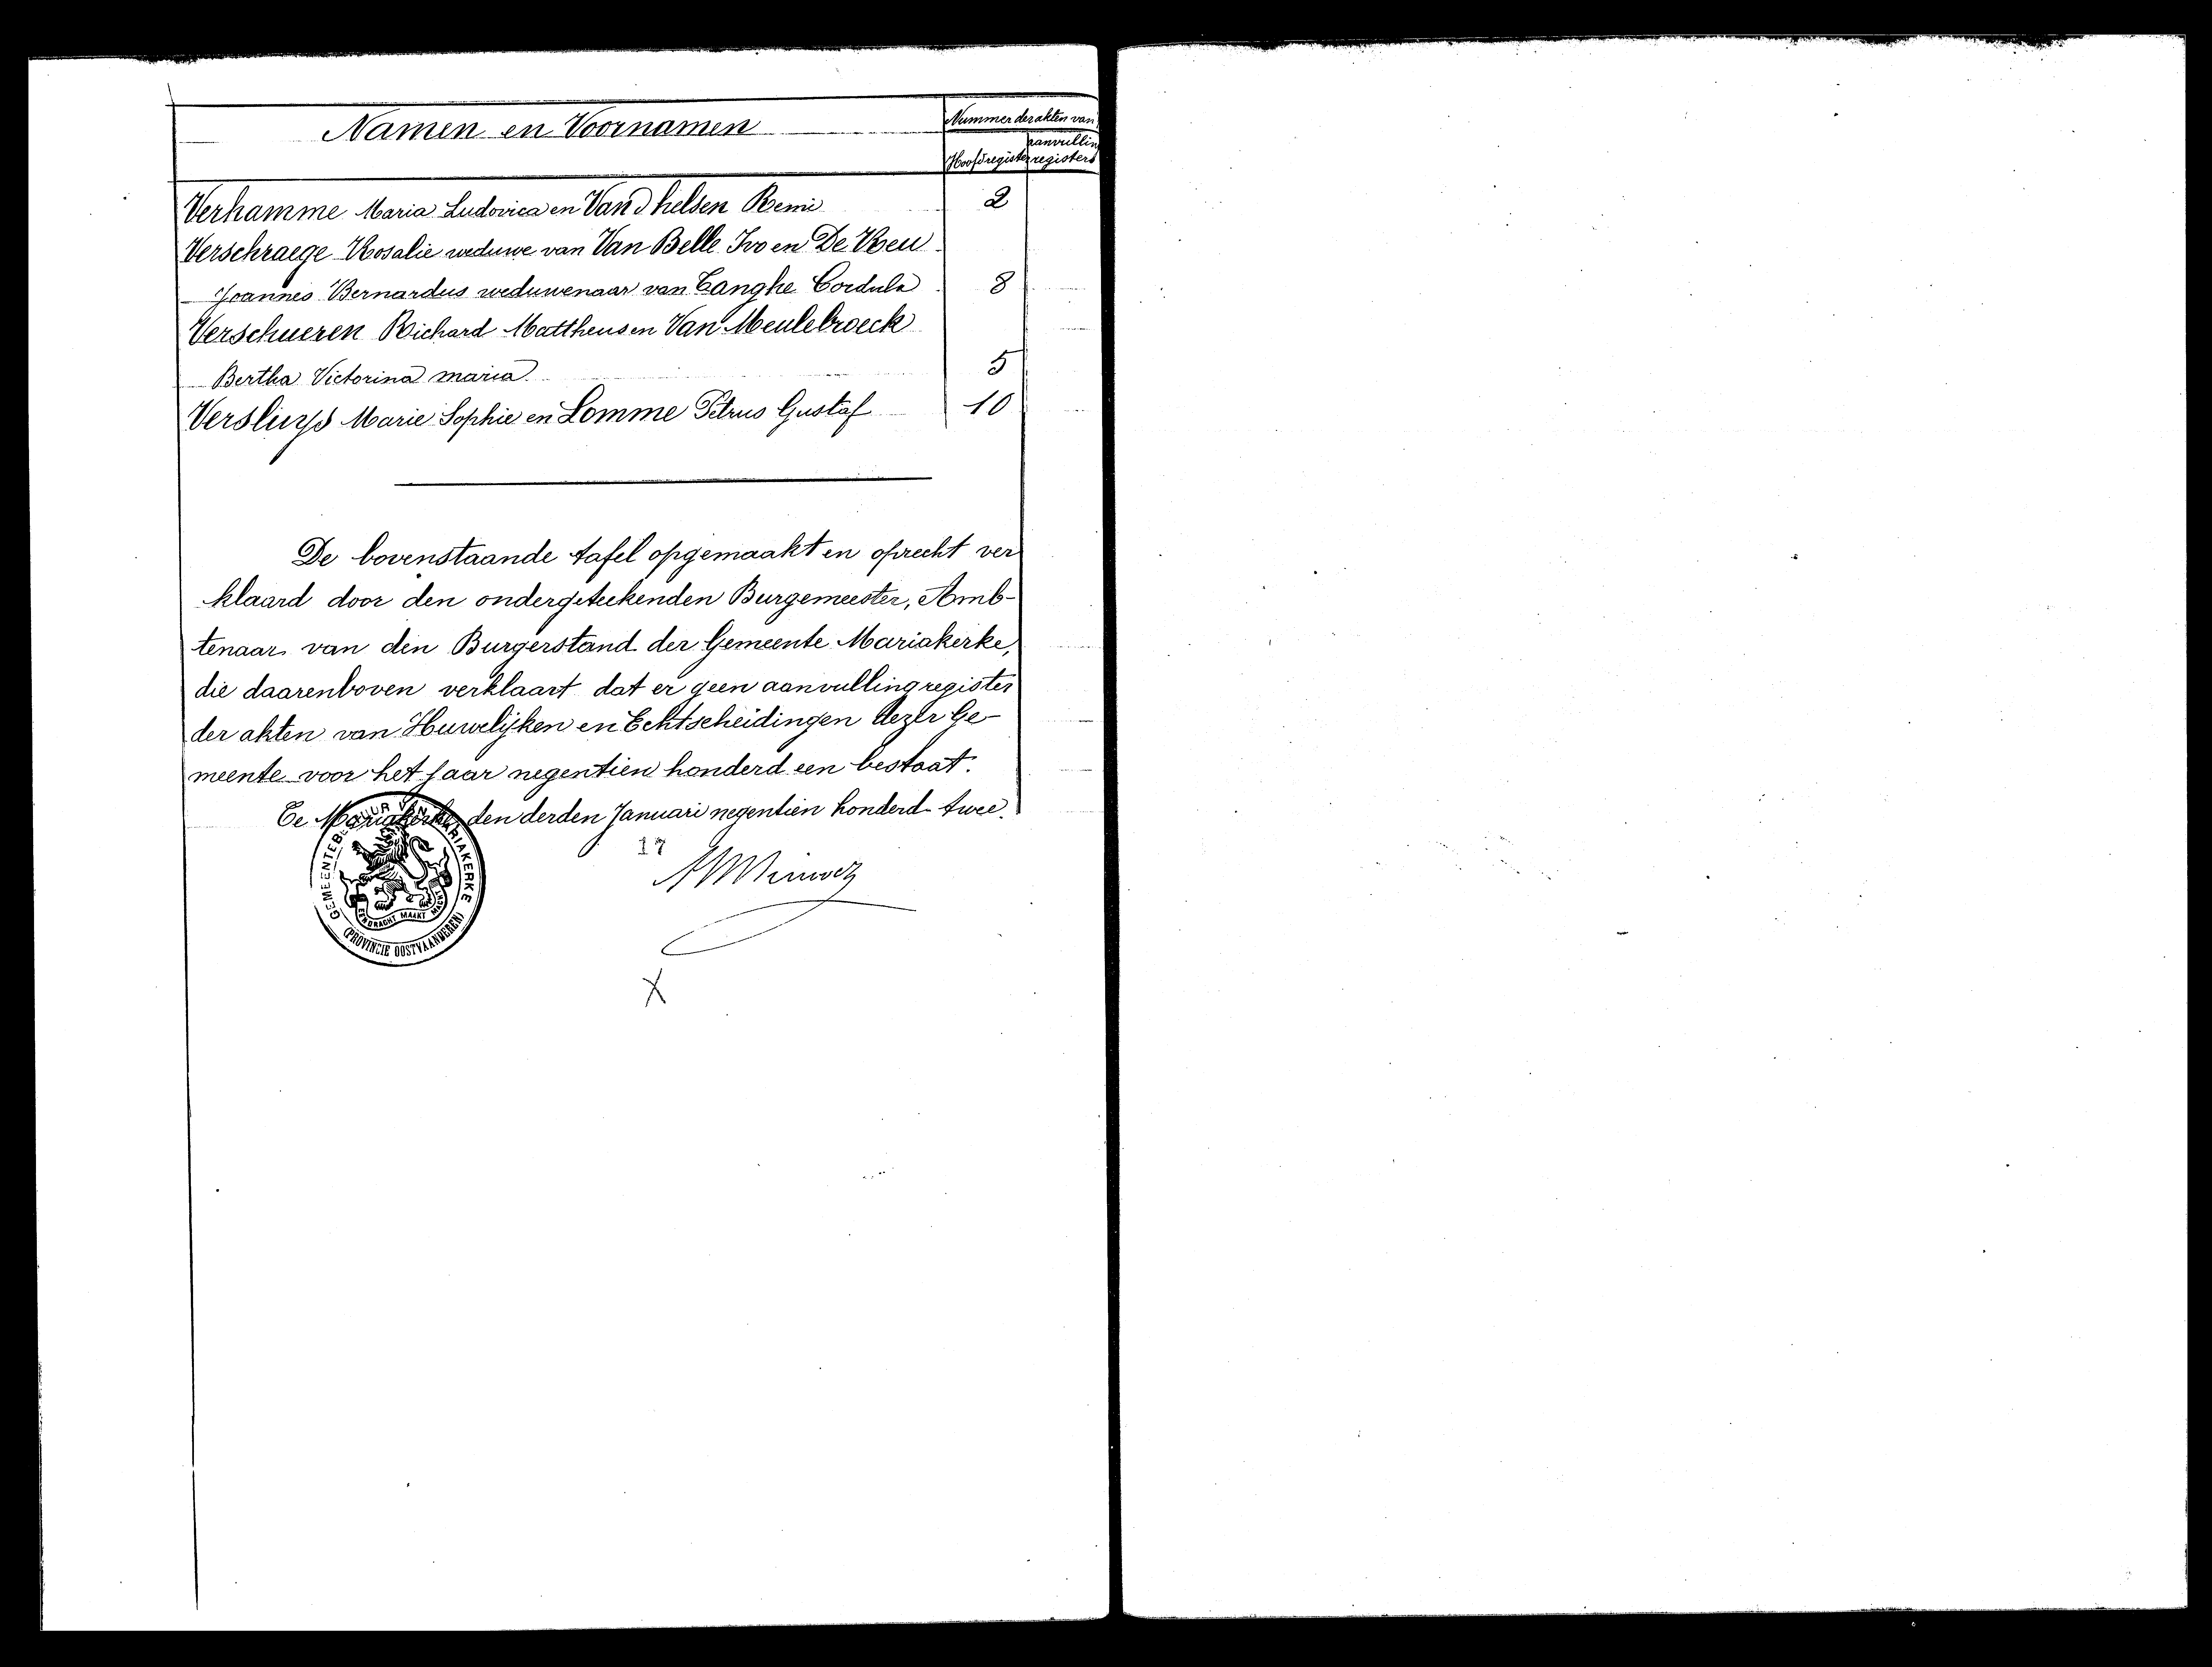 Namen en Voornamen
Nummer der akten van
Hoofdregister
aanvulling
registers
Verhamme Maria Ludovica en Van Dhelsen Remi 2
Verschraege Rosalie weduwe van Van Belle Ivo en De Reu
Joannes Bernardus weduwenaar van Tanghe Cordula 8
Verschueren Richard Mattheus en Van Meulebroeck
Bertha Victorina Maria 5
Versluys Marie Sophie en Lomme Petrus Gustaf 10
De bovenstaande tafel opgemaakt en oprecht ver
klaard door den ondergeteekenden Burgemeester, Amb-
tenaar van den Burgerstand der Gemeente Mariakerke,
die daarenboven verklaart dat er geen aanvullingregister
der akten van Huwelijken en Echtscheidingen dezer Ge-
meente voor het jaar negentien honderd een bestaat.
Te Mariakerke, den derden Januari negentien honderd twee.
17
GEMEENTEBESTUUR VAN MARIAKERKE
EENDRACHT MAAKT MACHT
(PROVINCIE OOSTVAANDEREN)
X